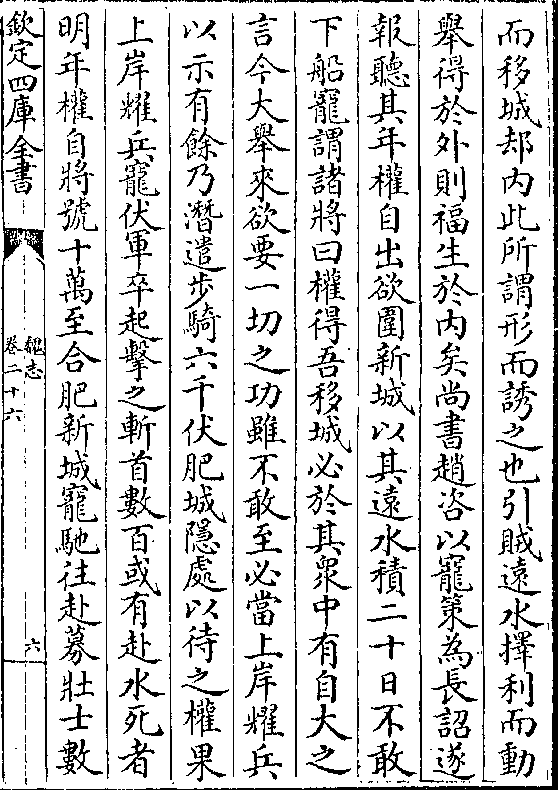 而移城却内此所謂形而誘之也引賊遠水擇利而動
舉得於外則福生於内矣尚書趙咨以寵策為長詔遂
報聽其年權自出欲圍新城以其遠水積二十日不敢
下船寵謂諸將曰權得吾移城必於其衆中有自大之
言今大舉來欲要一切之功雖不敢至必當上岸耀兵
以示有餘乃潛遣步騎六千伏肥城隱處以待之權果
上岸耀兵寵伏軍卒起擊之斬首數百或有赴水死者
明年權自將號十萬至合肥新城寵馳往赴募壯士數
欽定四庫全書
魏志
卷二十六
六